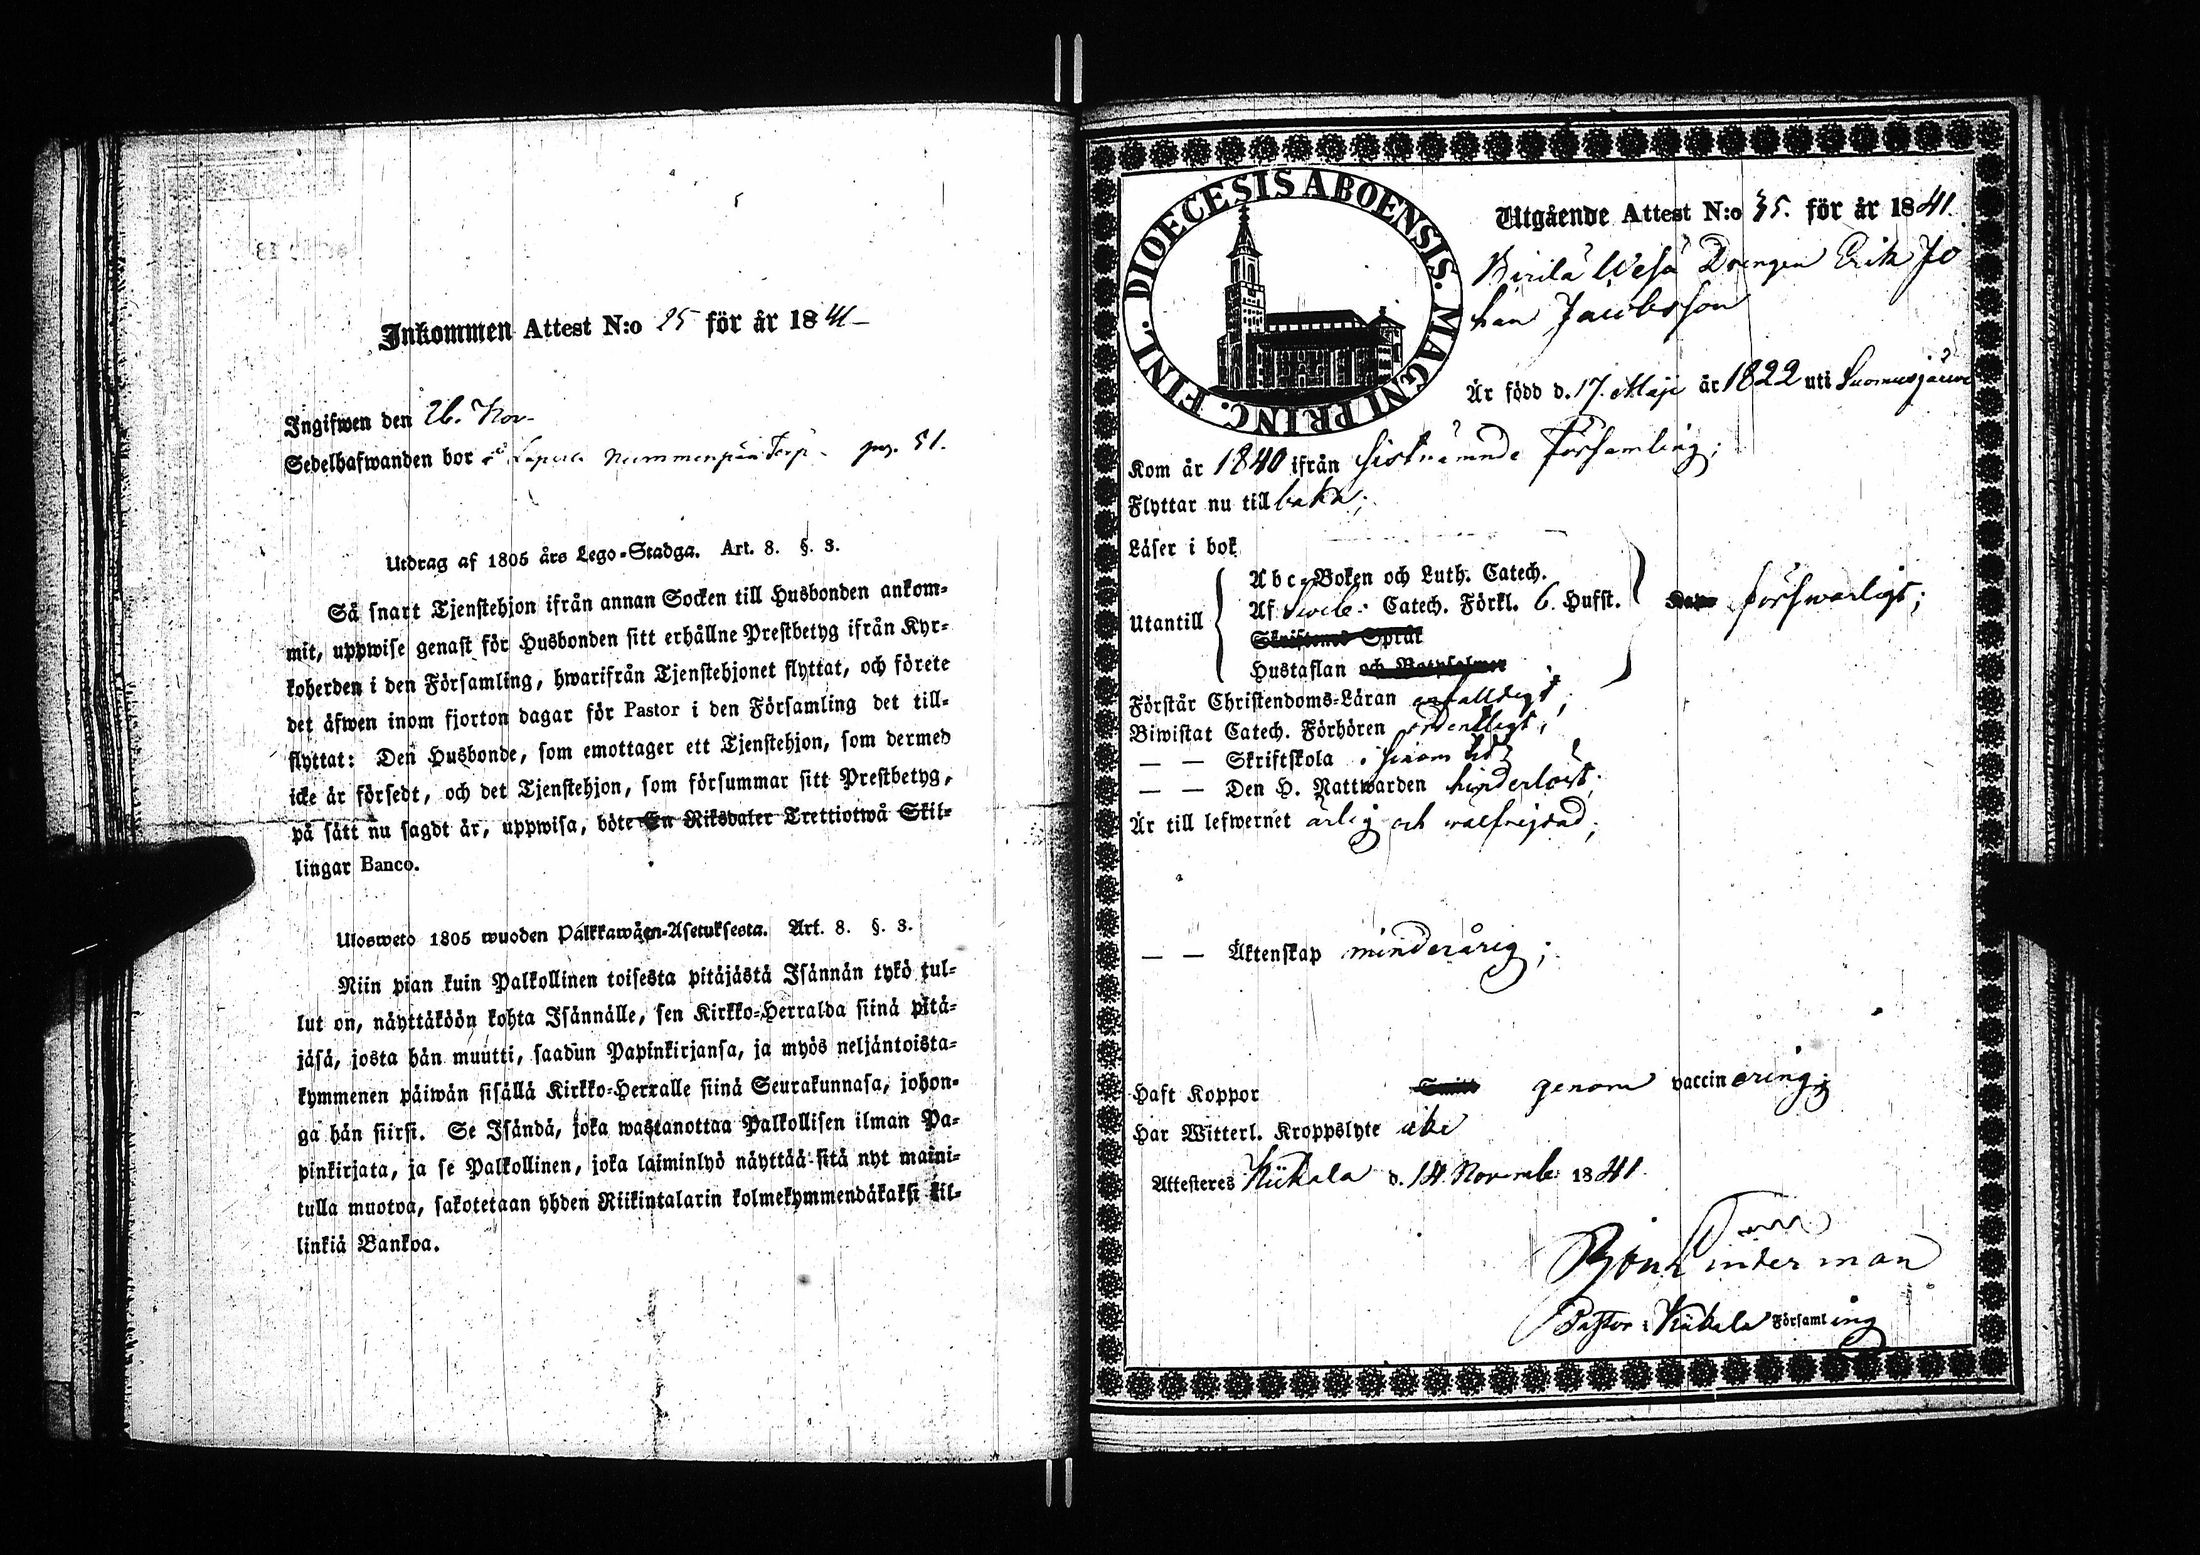 Inkommen Attest N:o 25 för år 1841
Ingifwen den 26. Nov.
Sedelhafwanden bor å Nummenpää Torp. pag. 51.
Utdrag af 1805 års Lego-Stadga. Art. 8. §. 3.
Så snart Tjenstehjon ifrån annan Socken till Husbonden ankom-
mit, uppwise genast för Husbonden sitt erhållne Prestbetyg ifrån Kyr-
koherden i den Församling, hwarifrån Tjenstehjonet flyttat, och förete
det äfwen inom fjorton dagar för Pastor i den Församling det till-
flyttat: Den Husbonde, som emottager ett Tjenstehjon, som dermed
icke är försedt, och det Tjenstehjon, som försummar sitt Prestbetyg,
på sätt nu sagdt är, uppwisa, böte En Riksdaler Trettiotwå Skil-
lingar Banco.
Ulosweto 1805 wuoden Palkkawäen-Asetuksesta. Art. 8. §. 3.
Niin pian kuin Palkollinen toisesta pitäjästä Isännän tykö tul-
lut on, näyttäköön kohta Isännälle, sen Kirkko-Herralda siinä pitä-
jäsä, josta hän muutti, saadun Papinkirjansa, ja myös neljäntoista-
kymmenen päiwän sisällä Kirkko-Herralle siinä Seurakunnasa, johon-
ga hän siirsi. Se Isändä, joka wastanottaa Palkollisen ilman Pa-
pinkirjata, ja se Palkollinen, joka laiminlyö näyttää sitä nyt maini-
tulla muotoa, sakotetaan yhden Riikintalarin kolmekymmendäkaksi kil-
linkiä Bankoa.
DIOECESIS ABOENSIS. MAGNI PRINC. FINL.
Utgående Attest N:o 35. för år 1841.
Drengen Erik Jo
han Jacobsson
Är född d. 17. Maji år 1822 uti Suomusjärvi
Kom år 1840 ifrån sistnämnde Församling;
Flyttar nu till baka;
Läser i bok
Utantill
Abc-Boken och Luth. Catech.
Af Sveb. Catech. Förkl. 6. Hufst. försvarligt;
Skriftenes Språk
Hustaflan och Botpsalmer
Förstår Christendoms-Läran enfalldigt;
Biwistat Catech. Förhören ordentligt;
— — Skriftskola i sinom tid
— — Den H. Nattwarden hinderlöst;
Är till lefwernet ärlig och välfrejdad;
— — Äktenskap minderårig;
Haft Koppor genom vaccinering;
Har Witterl. Kroppslyte icke
Attesteres Kiikala d. 14. Novemb: 1841.
Linderman
Pastor i Kiikala Församling